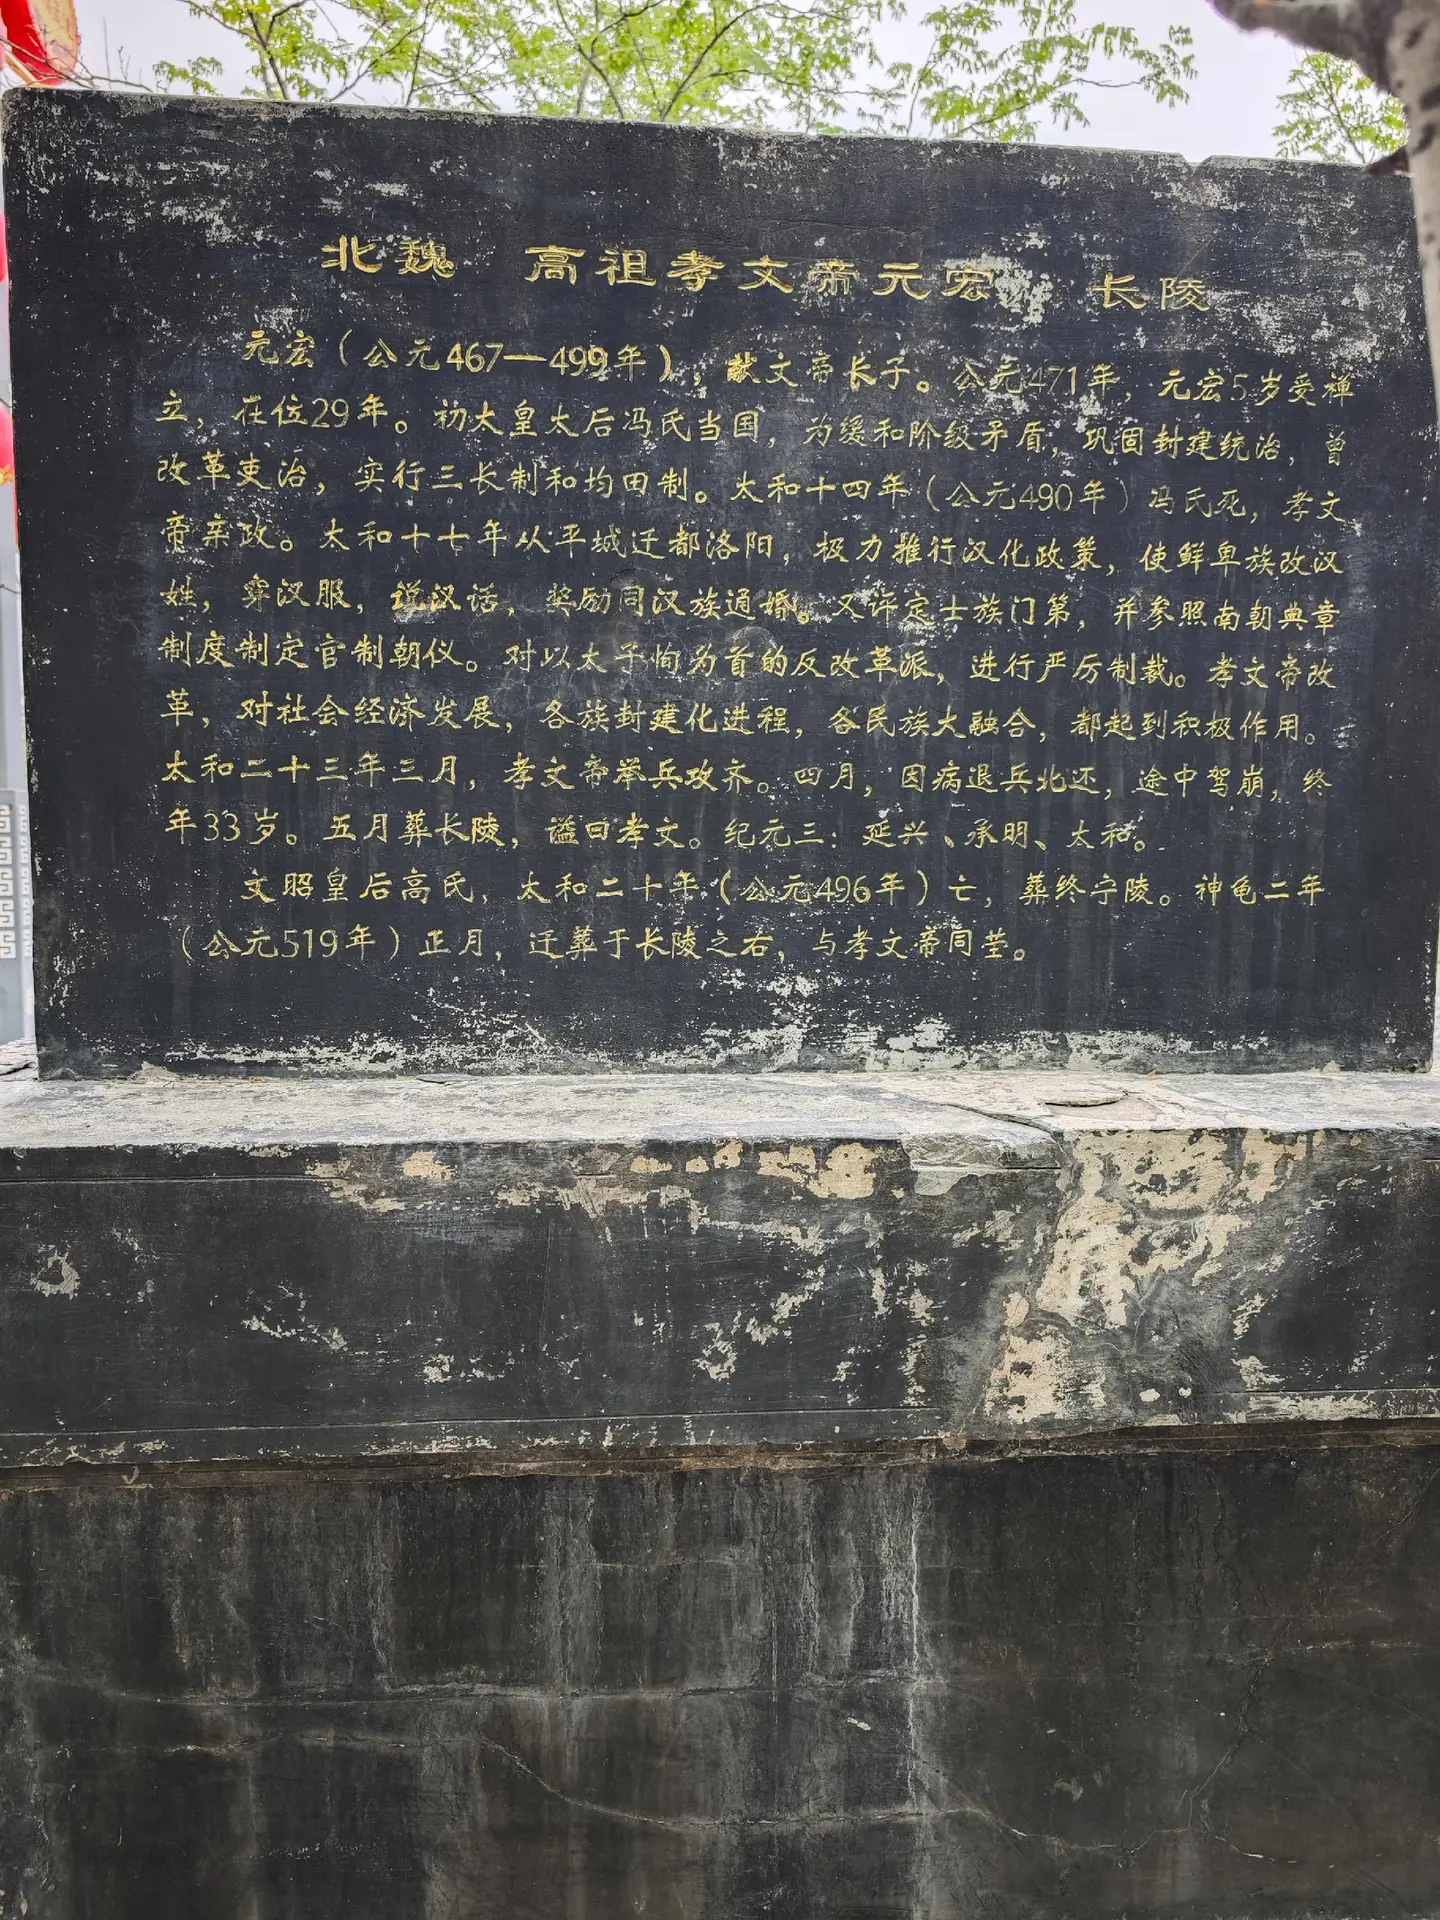 北魏 高祖孝文帝元宏 长陵
元宏（公元467—499年），献文帝长子。公元471年，元宏5岁受禅
立，在位29年。初太皇太后冯氏当国，为缓和阶级矛盾，巩固封建统治，曾
改革吏治，实行三长制和均田制。太和十四年（公元490年）冯氏死，孝文
帝亲政。太和十七年从平城迁都洛阳，极力推行汉化政策，使鲜卑族改汉
姓，穿汉服，说汉话，奖励同汉族通婚。又评定士族门第，并参照南朝典章
制度制定官制朝仪。对以太子恂为首的反改革派，进行严厉制裁。孝文帝改
革，对社会经济发展，各族封建化进程，各民族大融合，都起到积极作用。
太和二十三年三月，孝文帝举兵攻齐。四月，因病退兵北还，途中驾崩，终
年33岁。五月葬长陵，谥曰孝文。纪元三：延兴、承明、太和。
文昭皇后高氏，太和二十年（公元496年）亡，葬终宁陵。神龟二年
（公元519年）正月，迁葬于长陵之右，与孝文帝同茔。